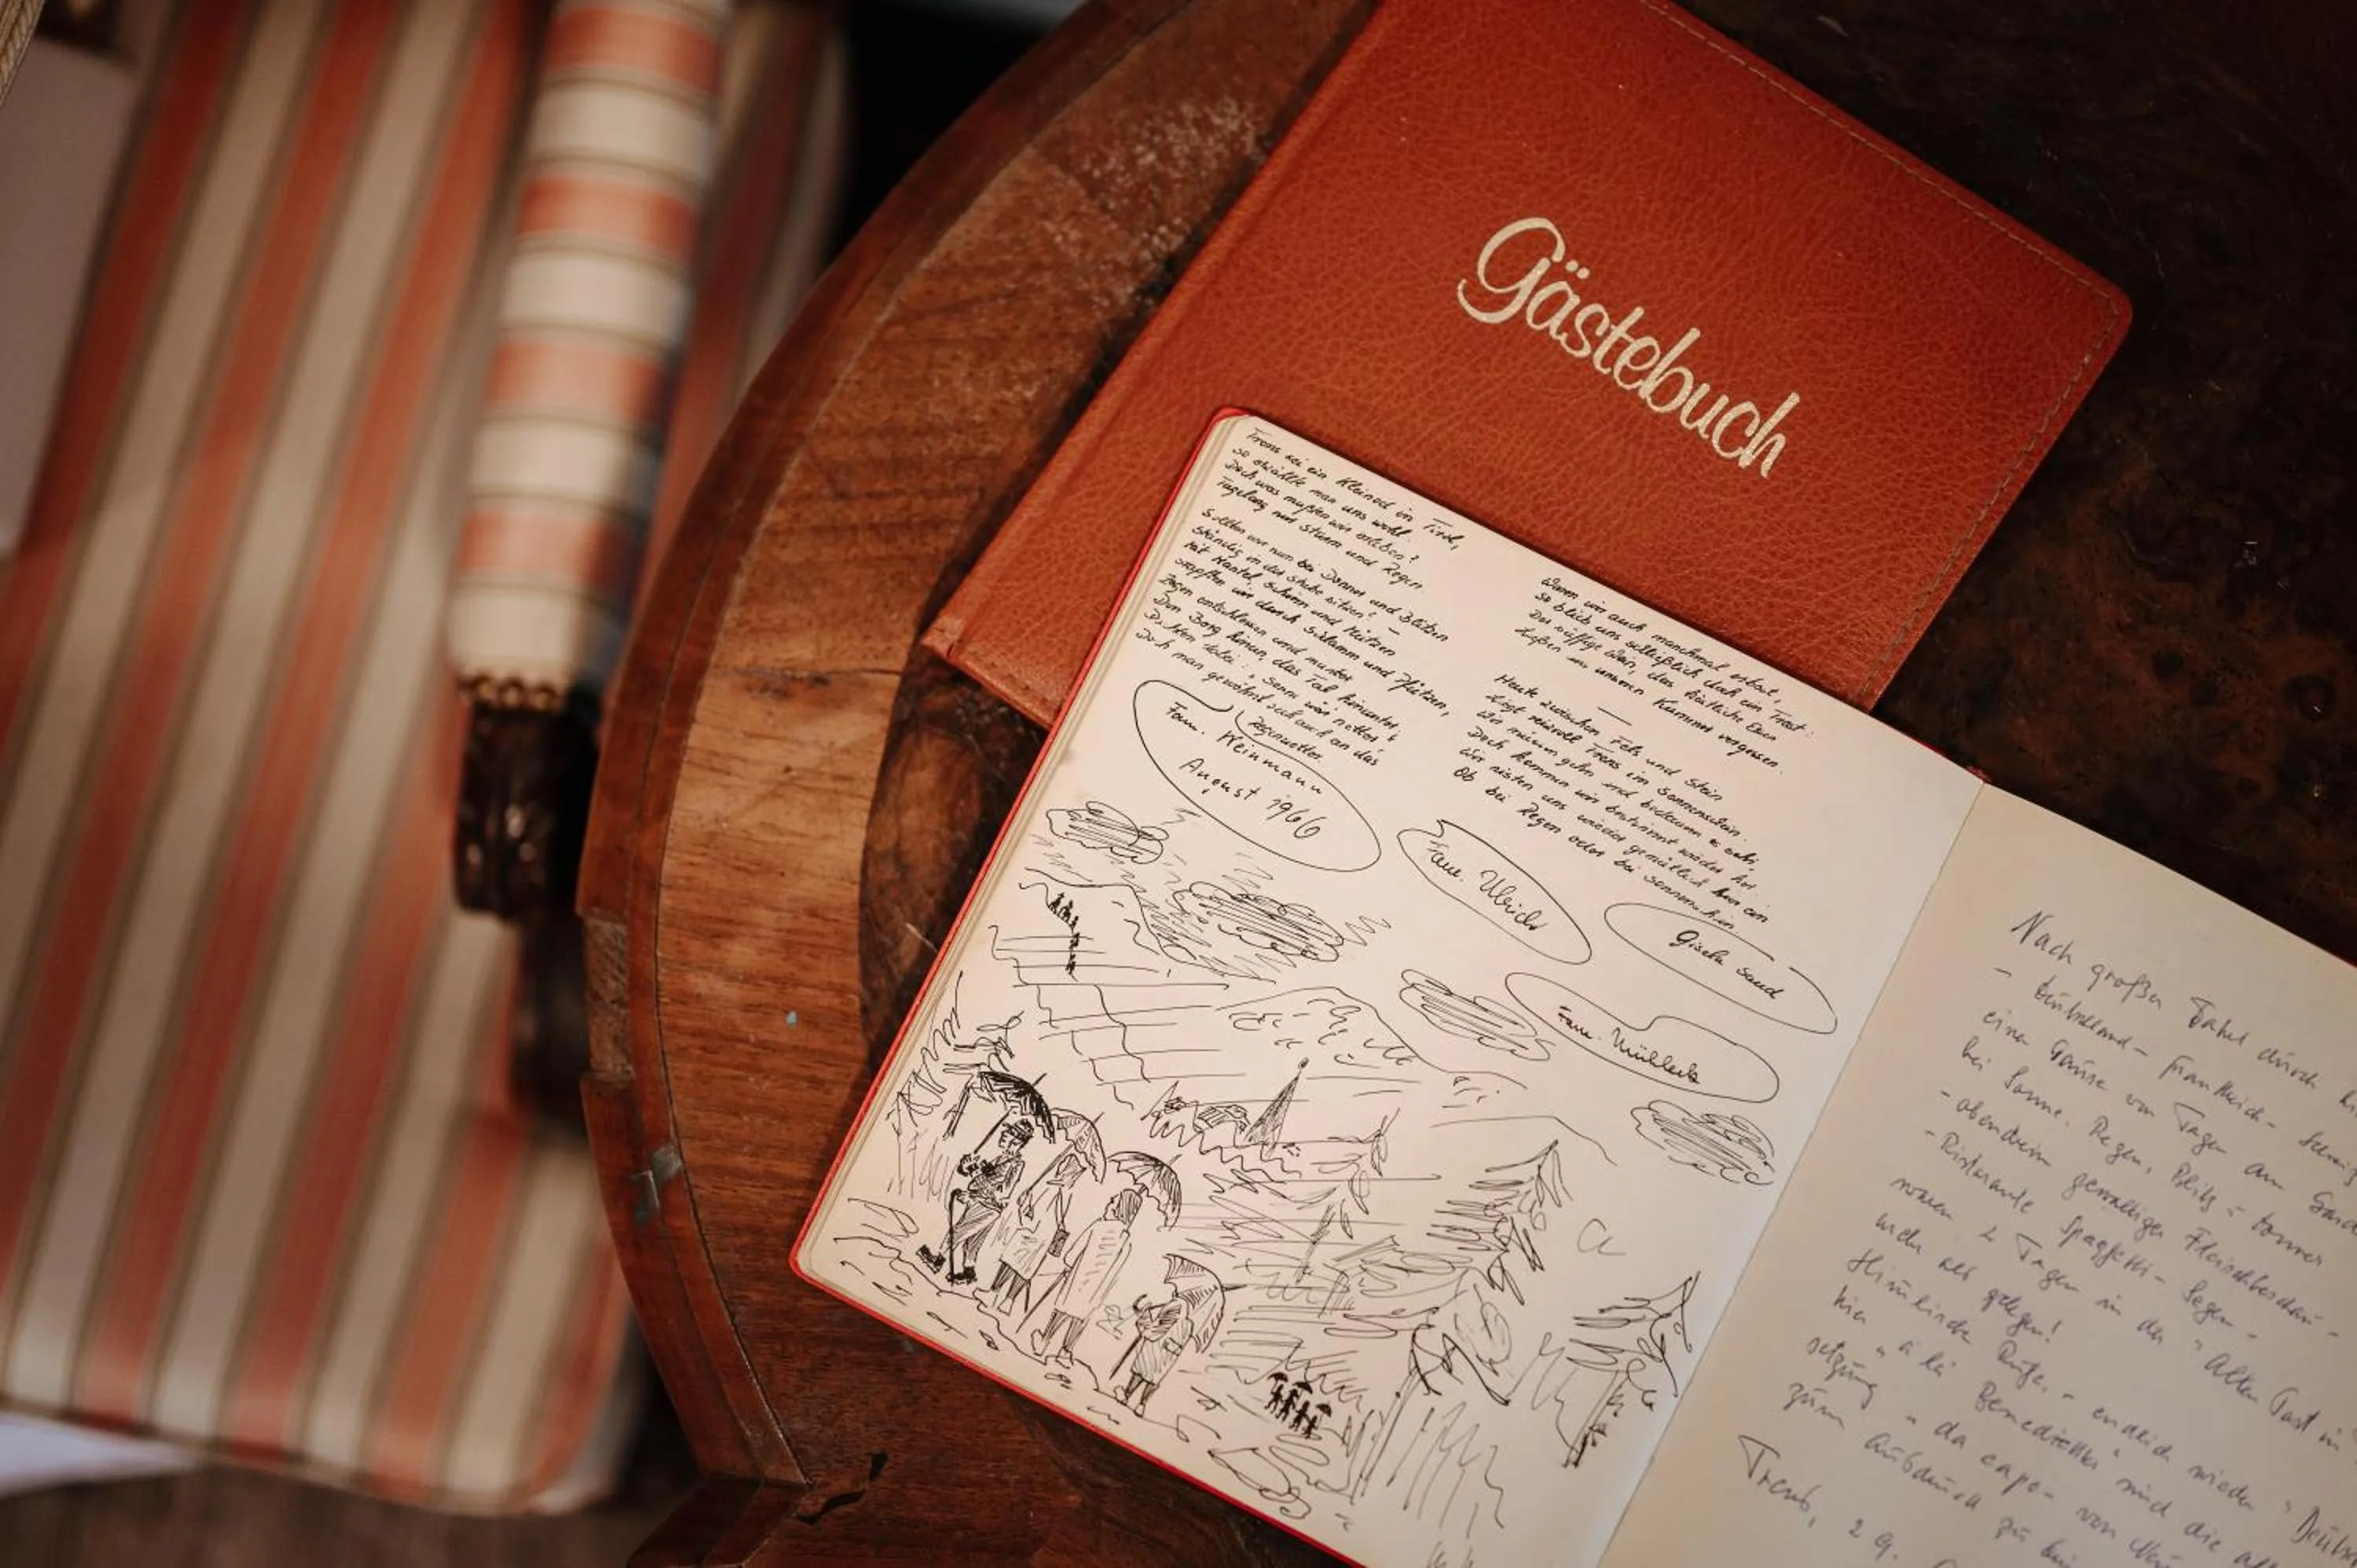 Gästebuch
Trens sei ein Kleinod in Tirol,
so erzählte man uns wohl
Doch was mußten wir erleben?
Tagelang nur Sturm und Regen
Sollten wir nun bei Donner und Blitzen
ständig in der Stube sitzen? –
Mit Mantel, Schirm und Mützen
stapften wir durch Schlamm und Pfützen,
zogen entschlossen und munter
Den Berg hinan, das Tal hinunter,
Dachten dabei: „Senn wär netter;
Doch man gewöhnt sich auch an das
Regenwetter.
Fam. Weinmann
August 1966
Wenn wir auch manchmal erbost,
So blieb uns schließlich doch ein Trost:
Der süffige Wein, das köstliche Essen
ließen uns unseren Kummer vergessen.
Heute zwischen Fels und Stein
Liegt reizvoll Trens im Sonnenschein
Wir müssen gehn und bedauern es sehr,
Doch kommen wir bestimmt wieder her
Wir nisten uns wieder gemütlich hier ein
Ob bei Regen oder bei Sonnenschein.
Fam. Ulrich
Gisela Sand
Fam.
Nach großer Fahrt durch
– Deutschland – Frankreich –
einer Pause von Tagen am
bei Sonne, Regen, Blitz & Donner
– obendrein gewaltiger Fleischbeschau –
– Ristorante Spaghetti – Segen –
waren 2 Tage in der "Alten Post" in
mehr als gelegen!
Himmlische Ruhe. – endlich wieder
hier "à la Benedikt" sind die
setzung " da capo – von
zum Ausdruck zu
Trens, 29.